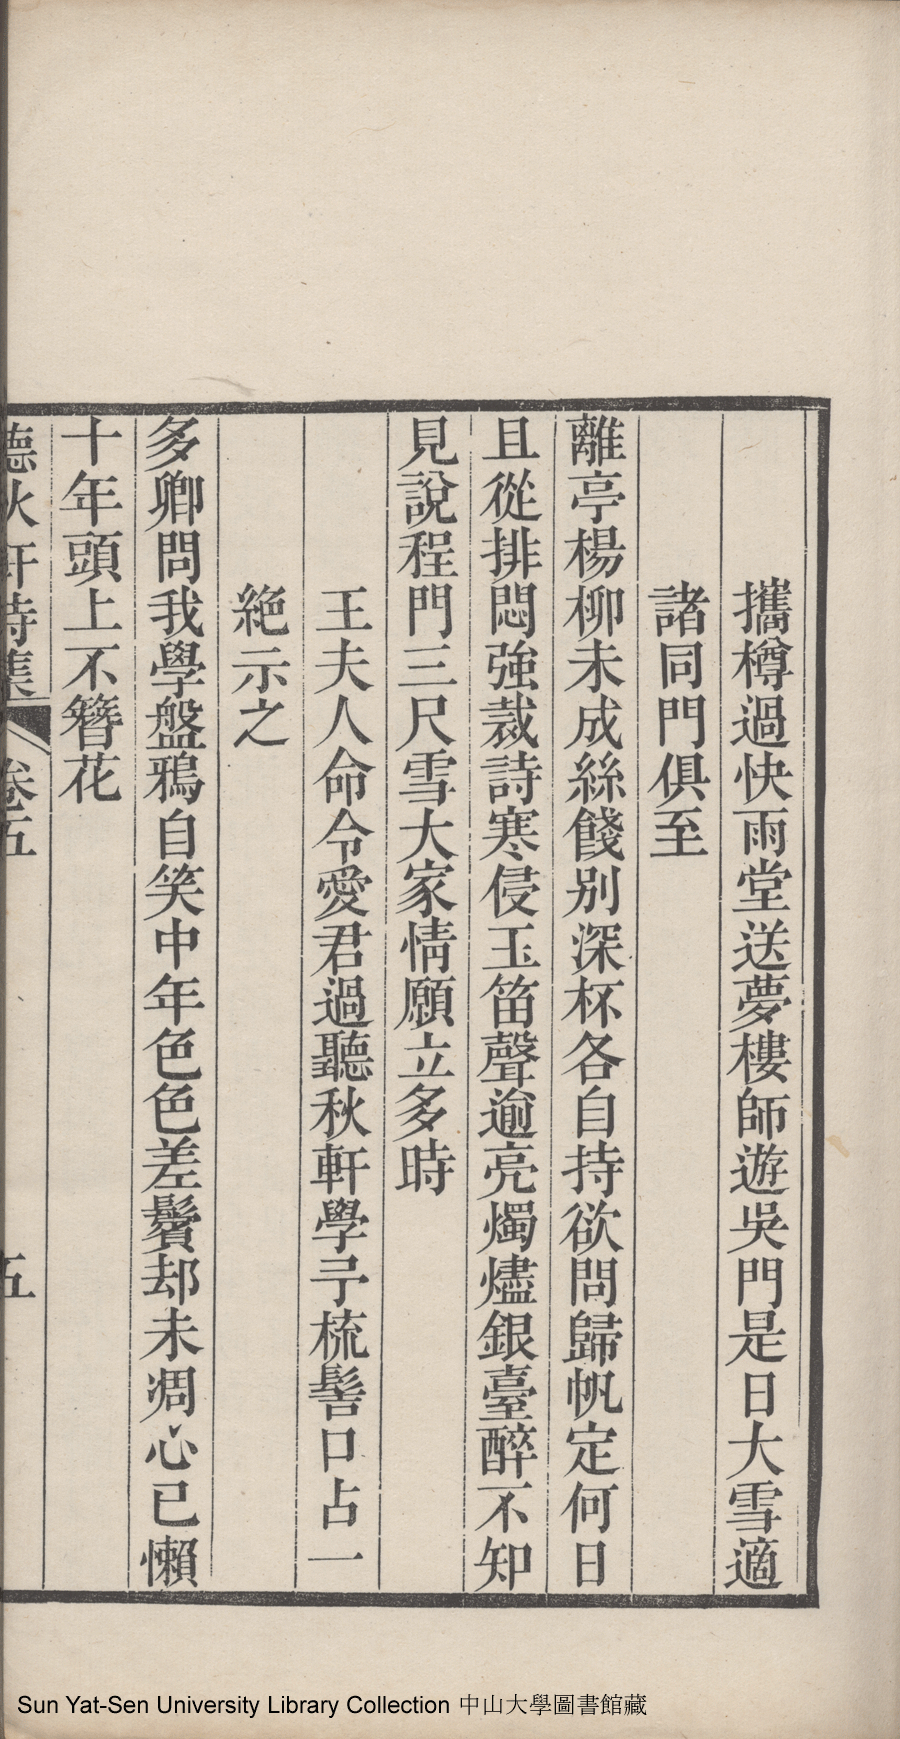 攜樽過快雨堂送夢樓師遊吳門是日大雪適
諸同門俱至
離亭楊柳未成絲餞別深杯各自持欲問歸帆定何日
且從排悶強裁詩寒侵玉笛聲逾亮燭燼銀臺醉不知
見說程門三尺雪大家情願立多時
王夫人命令愛君過聽秋軒學予梳髻口占一
絶示之
多卿問我學盤鴉自笑中年色色差鬢却未凋心已懶
十年頭上不簪花
聽秋軒詩集 卷五 五
Sun Yat-Sen University Library Collection 中山大學圖書館藏